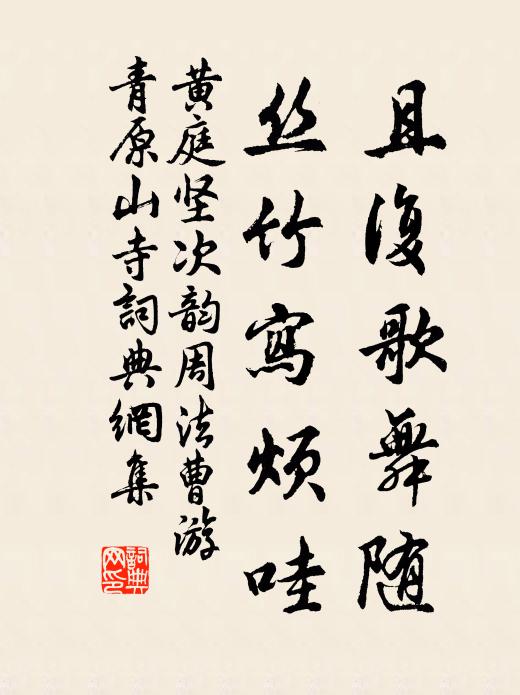 且復歌舞随
丝竹寫烦哇
黄庭坚次韵周法曹游
青原山寺詞典網集
詞典网印